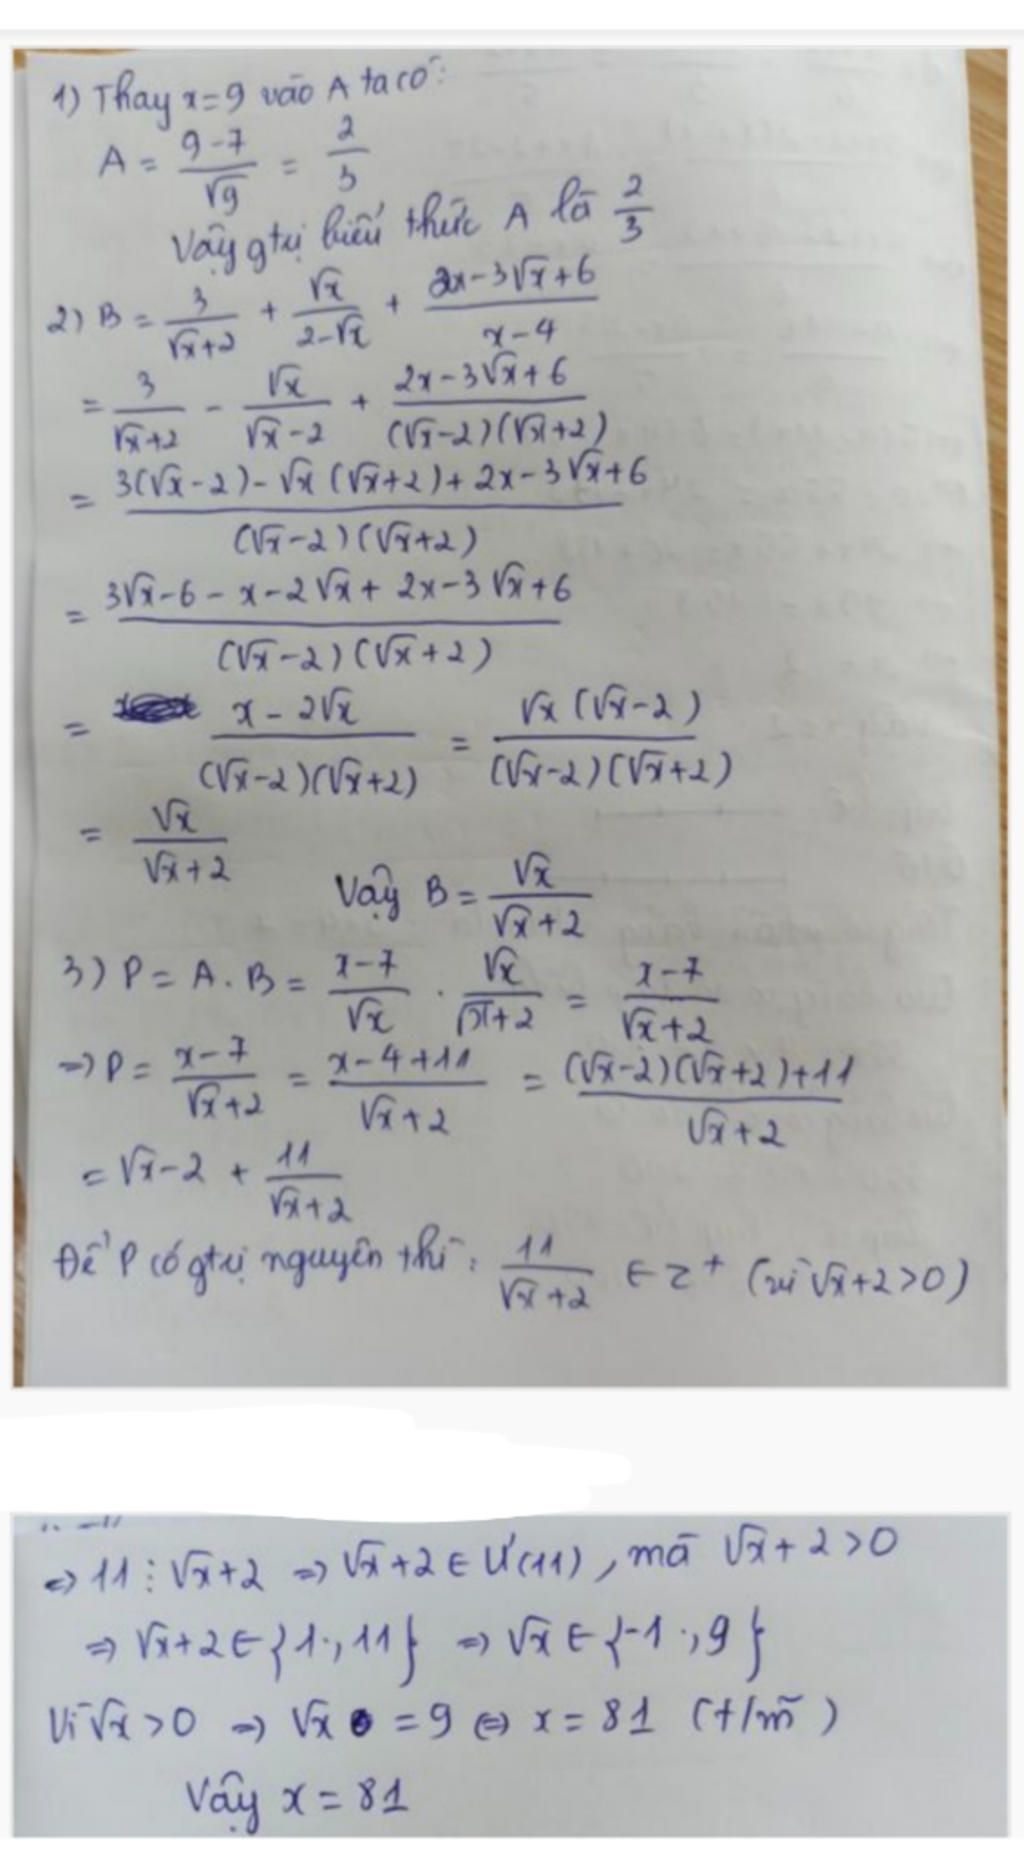 1) Thay x=9 vào A ta có:
A = \frac{9-7}{\sqrt{9}} = \frac{2}{3}
Vậy gtrị biểu thức A là \frac{2}{3}
2) B = \frac{3}{\sqrt{x}+2} + \frac{\sqrt{x}}{2-\sqrt{x}} + \frac{2x-3\sqrt{x}+6}{x-4}
= \frac{3}{\sqrt{x}+2} - \frac{\sqrt{x}}{\sqrt{x}-2} + \frac{2x-3\sqrt{x}+6}{(\sqrt{x}-2)(\sqrt{x}+2)}
= \frac{3(\sqrt{x}-2)-\sqrt{x}(\sqrt{x}+2)+2x-3\sqrt{x}+6}{(\sqrt{x}-2)(\sqrt{x}+2)}
= \frac{3\sqrt{x}-6-x-2\sqrt{x}+2x-3\sqrt{x}+6}{(\sqrt{x}-2)(\sqrt{x}+2)}
= \frac{x-2\sqrt{x}}{(\sqrt{x}-2)(\sqrt{x}+2)} = \frac{\sqrt{x}(\sqrt{x}-2)}{(\sqrt{x}-2)(\sqrt{x}+2)}
= \frac{\sqrt{x}}{\sqrt{x}+2}
Vậy B = \frac{\sqrt{x}}{\sqrt{x}+2}
3) P = A.B = \frac{x-7}{\sqrt{x}} . \frac{\sqrt{x}}{\sqrt{x}+2} = \frac{x-7}{\sqrt{x}+2}
=> P = \frac{x-7}{\sqrt{x}+2} = \frac{x-4+11}{\sqrt{x}+2} = \frac{(\sqrt{x}-2)(\sqrt{x}+2)+11}{\sqrt{x}+2}
= \sqrt{x}-2 + \frac{11}{\sqrt{x}+2}
Để P có gtrị nguyên thì: \frac{11}{\sqrt{x}+2} ∈ Z⁺ (vì \sqrt{x}+2>0)
<=> 11 ⋮ \sqrt{x}+2 => \sqrt{x}+2 ∈ Ư(11), mà \sqrt{x}+2>0
=> \sqrt{x}+2 ∈ {1; 11} => \sqrt{x} ∈ {-1; 9}
Vì \sqrt{x}>0 => \sqrt{x} = 9 <=> x = 81 (t/m)
Vậy x = 81